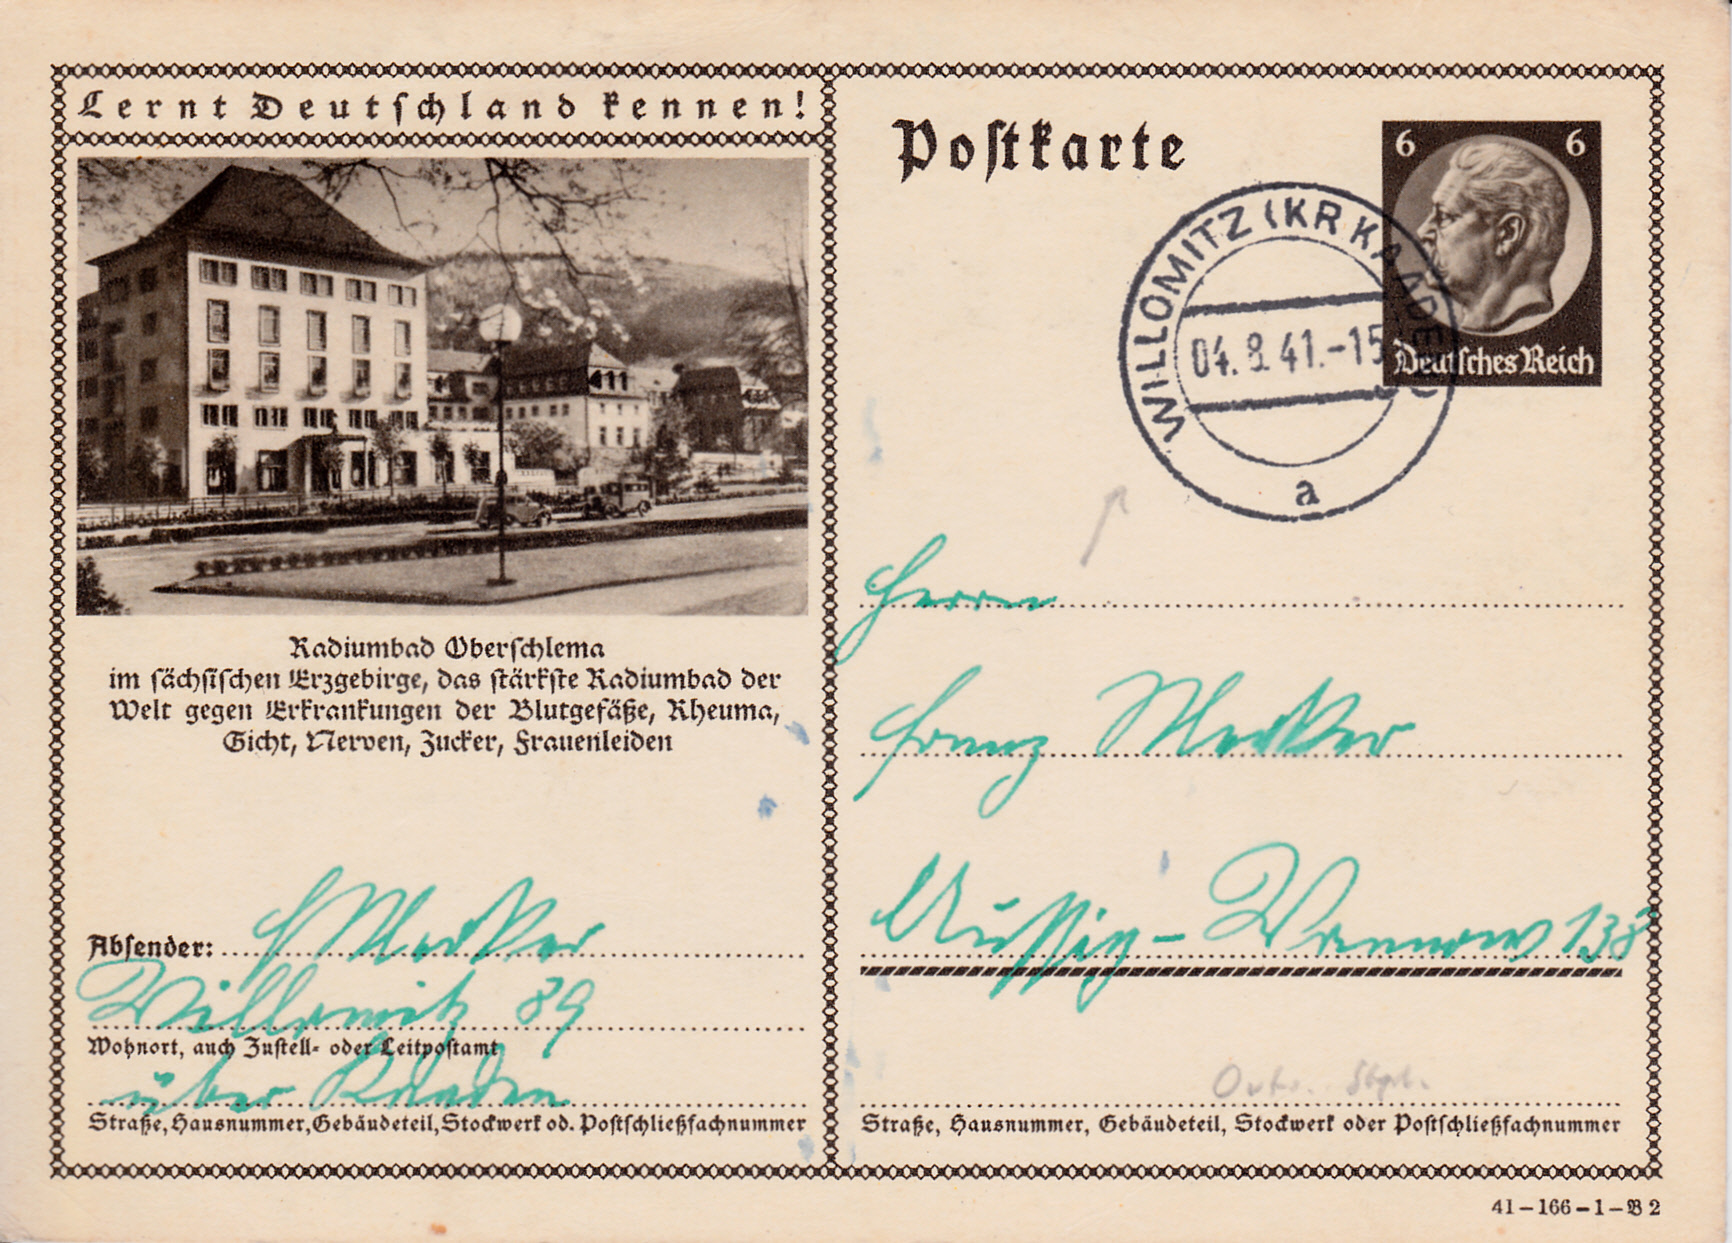 Lernt Deutschland kennen!
Radiumbad Oberschlema
im sächsischen Erzgebirge, das stärkste Radiumbad der
Welt gegen Erkrankungen der Blutgefäße, Rheuma,
Gicht, Nerven, Zucker, Frauenleiden
Absender:
Willomitz 89
Wohnort, auch Zustell- oder Leitpostamt
über Kaaden
Straße, Hausnummer, Gebäudeteil, Stockwerk od. Postschließfachnummer
Postkarte
6 6
Deutsches Reich
WILLOMITZ (KR KAADEN)
04.8.41.-15
a
Herrn
Franz
Aussig-
Straße, Hausnummer, Gebäudeteil, Stockwerk oder Postschließfachnummer
41-166-1-B 2